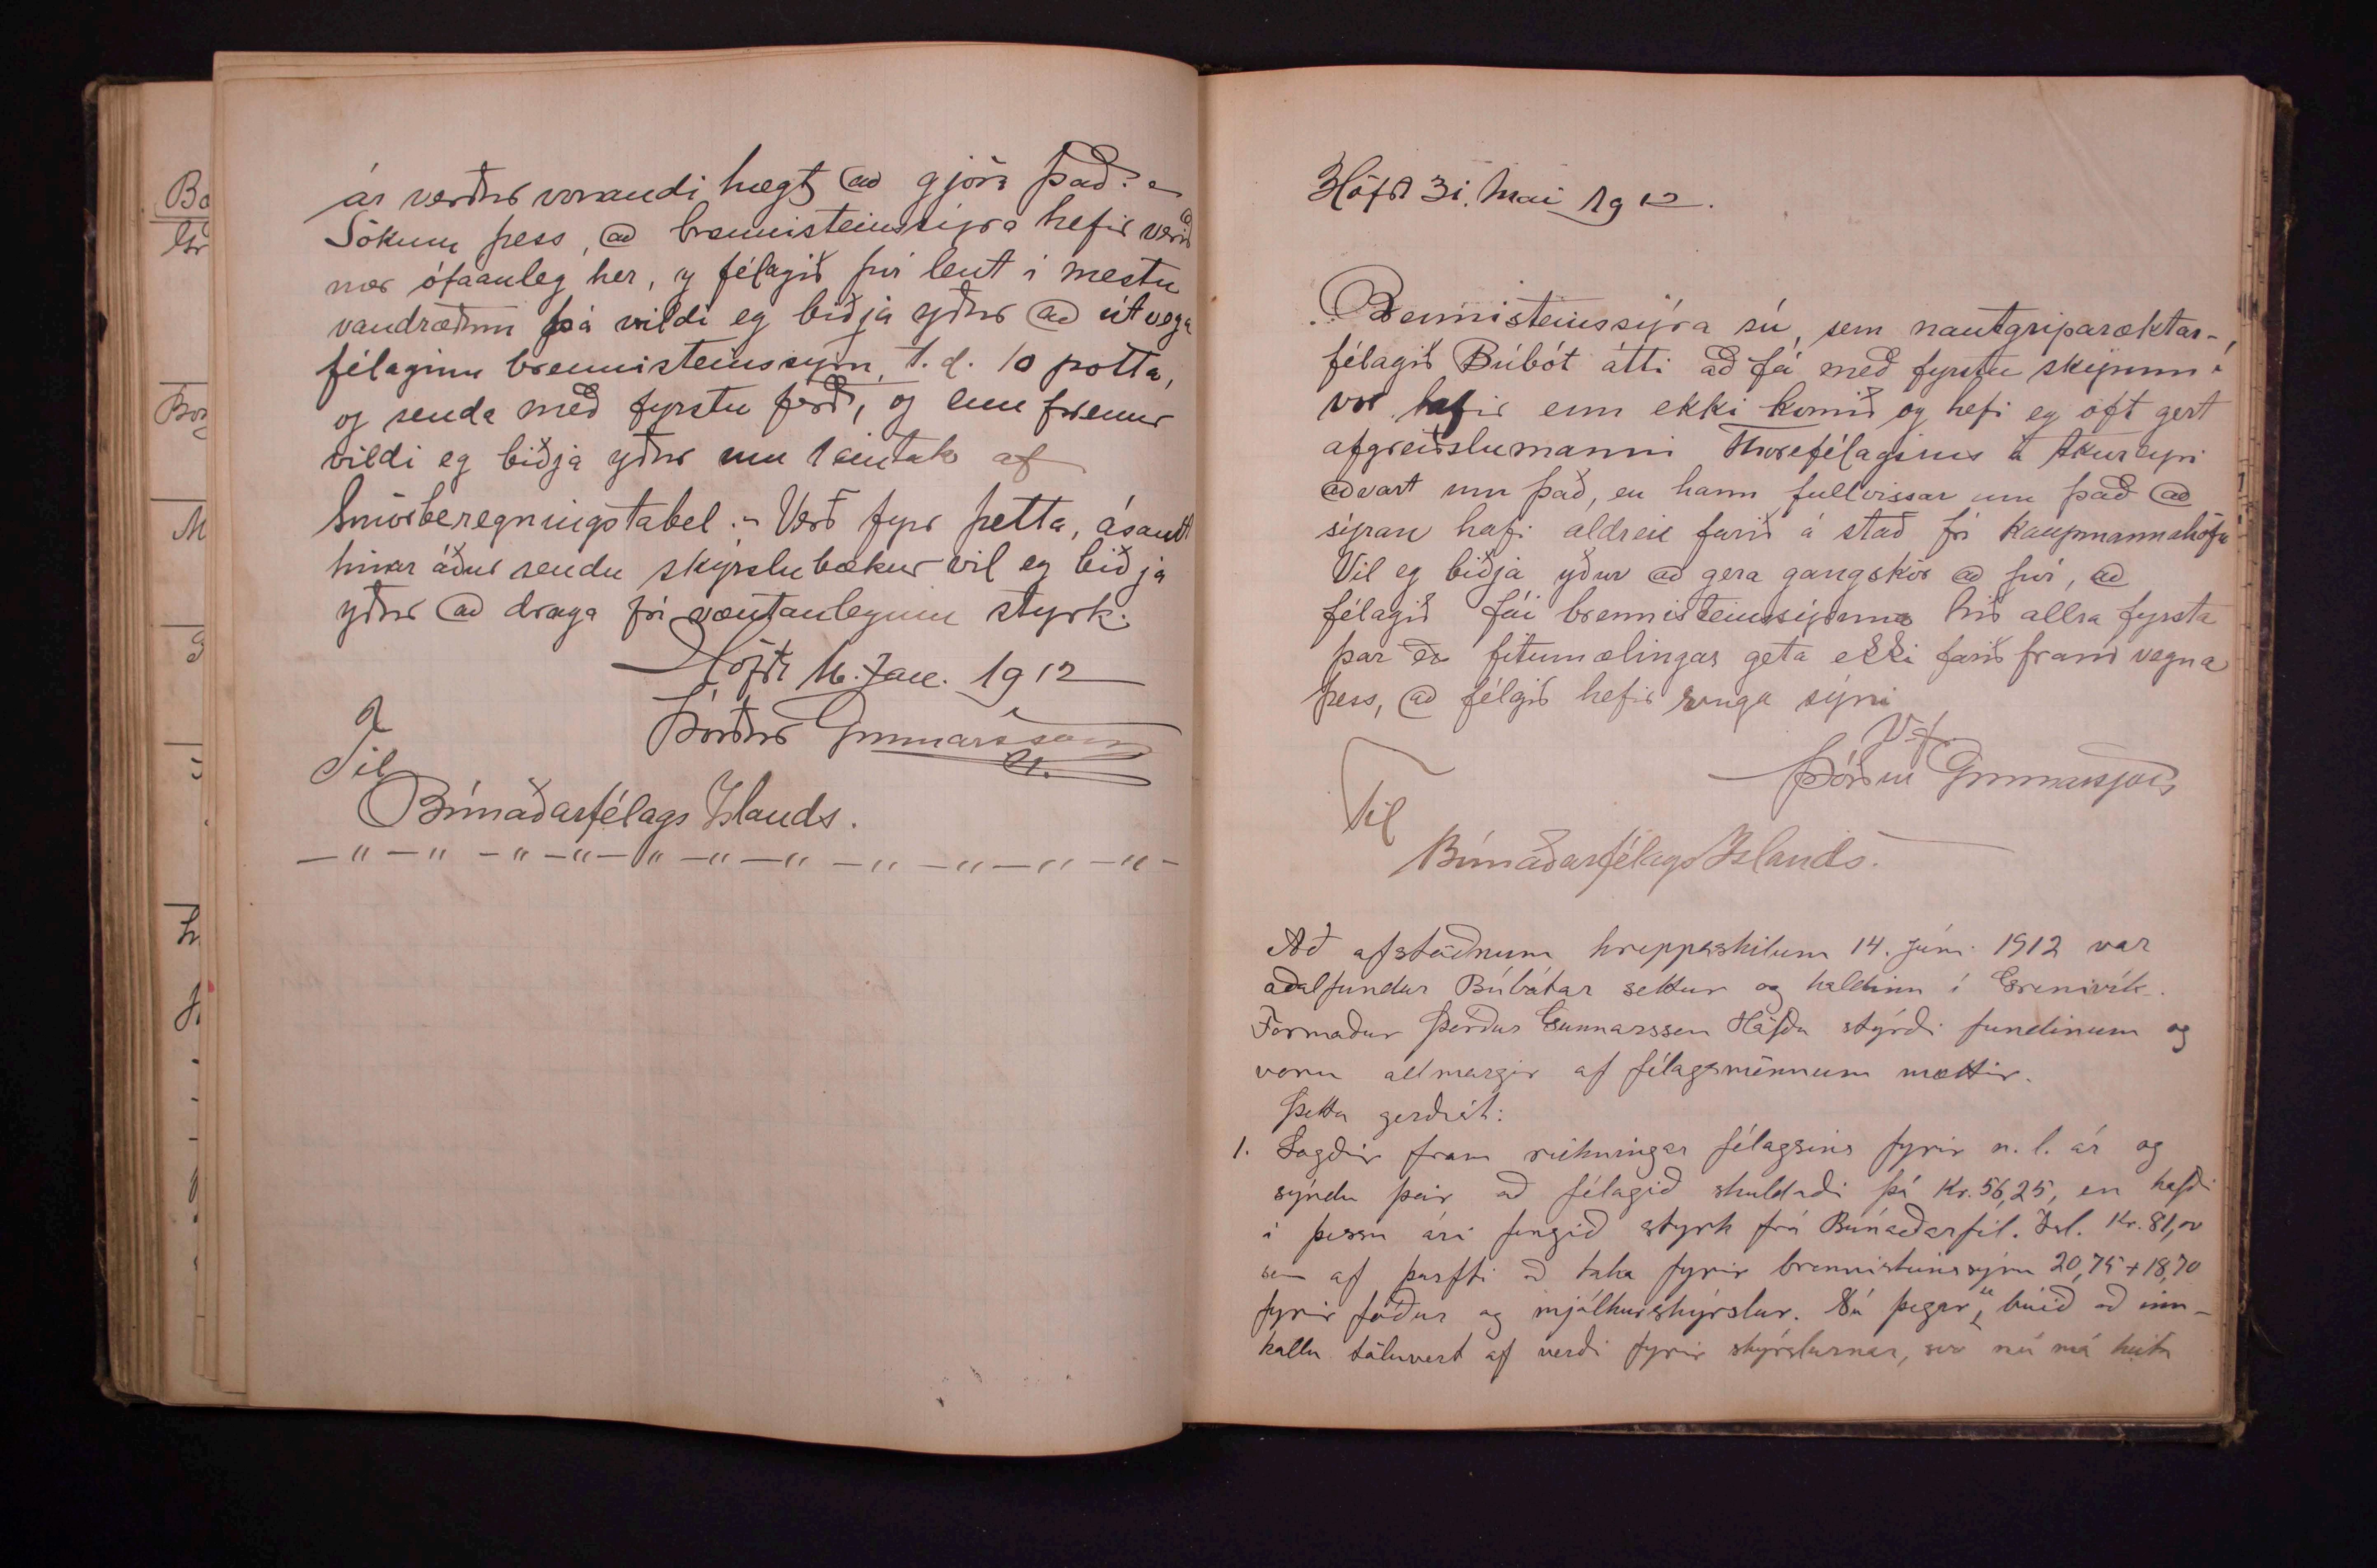 ár verður vonandi hægt að gjöra það. -
Sökum þess, að brennisteinssýra hefir verið
nær ófáanleg hér, og félagið því lent í mestu
vandræðum þá vildi eg biðja yður að útvega
félaginu brennisteinssýru, t.d. 10 potta,
og senda með fyrstu ferð, og enn fremur
vildi eg biðja yður um 1 eintak af
Smörberegningstabel. - Verð fyrir þetta, ásamt
hinar áður sendu skýrslubækur vil eg biðja
yður að draga frá væntanlegum styrk.
Höfða 16. Jan. 1912
Þórður Gunnarsson
Til
Búnaðarfélags Islands.
Höfða 31. Mai 1912.
Brennisteinssýra sú, sem nautgriparæktar-
félagið Búbót átti að fá með fyrstu skipum í
vor hefir enn ekki komið og hefi eg oft gert
afgreiðslumanni Thorefélagsins á Akureyri
aðvart um það, en hann fullvissar um það að
sýran hafi aldrei farið á stað frá Kaupmannahöfn
Vil eg biðja yður að gera gangskör að því, að
félagið fái brennisteinssýruna hið allra fyrsta
þar eð fitumælingar geta ekki farið fram vegna
þess, að félgið hefir enga sýru
Þórður Gunnarsson
Til
Búnaðarfélags Islands.
Að afstöðnum hreppaskilum 14. júní 1912 var
aðalfundur Búbótar settur og haldinn í Grenivík.
Formaður Þórður Gunnarsson Höfða stýrði fundinum og
voru allmargir af félagsmönnum mættir.
Þetta gerðist:
1. Lagðir fram reikningar félagsins fyrir n. l. ár og
sýndu þeir að félagið skuldaði þá Kr. 56,25, en hafði
á þessu ári fengið styrk frá Búnaðarfél. Ísl. Kr. 81,00
sem af þurfti að taka fyrir brennisteinssýru 20,75 + 18,70
fyrir fóður og mjólkurskýrslur. Nú þegar er búið að inn-
kalla töluvert af verði fyrir skýrslurnar, svo nú má heita